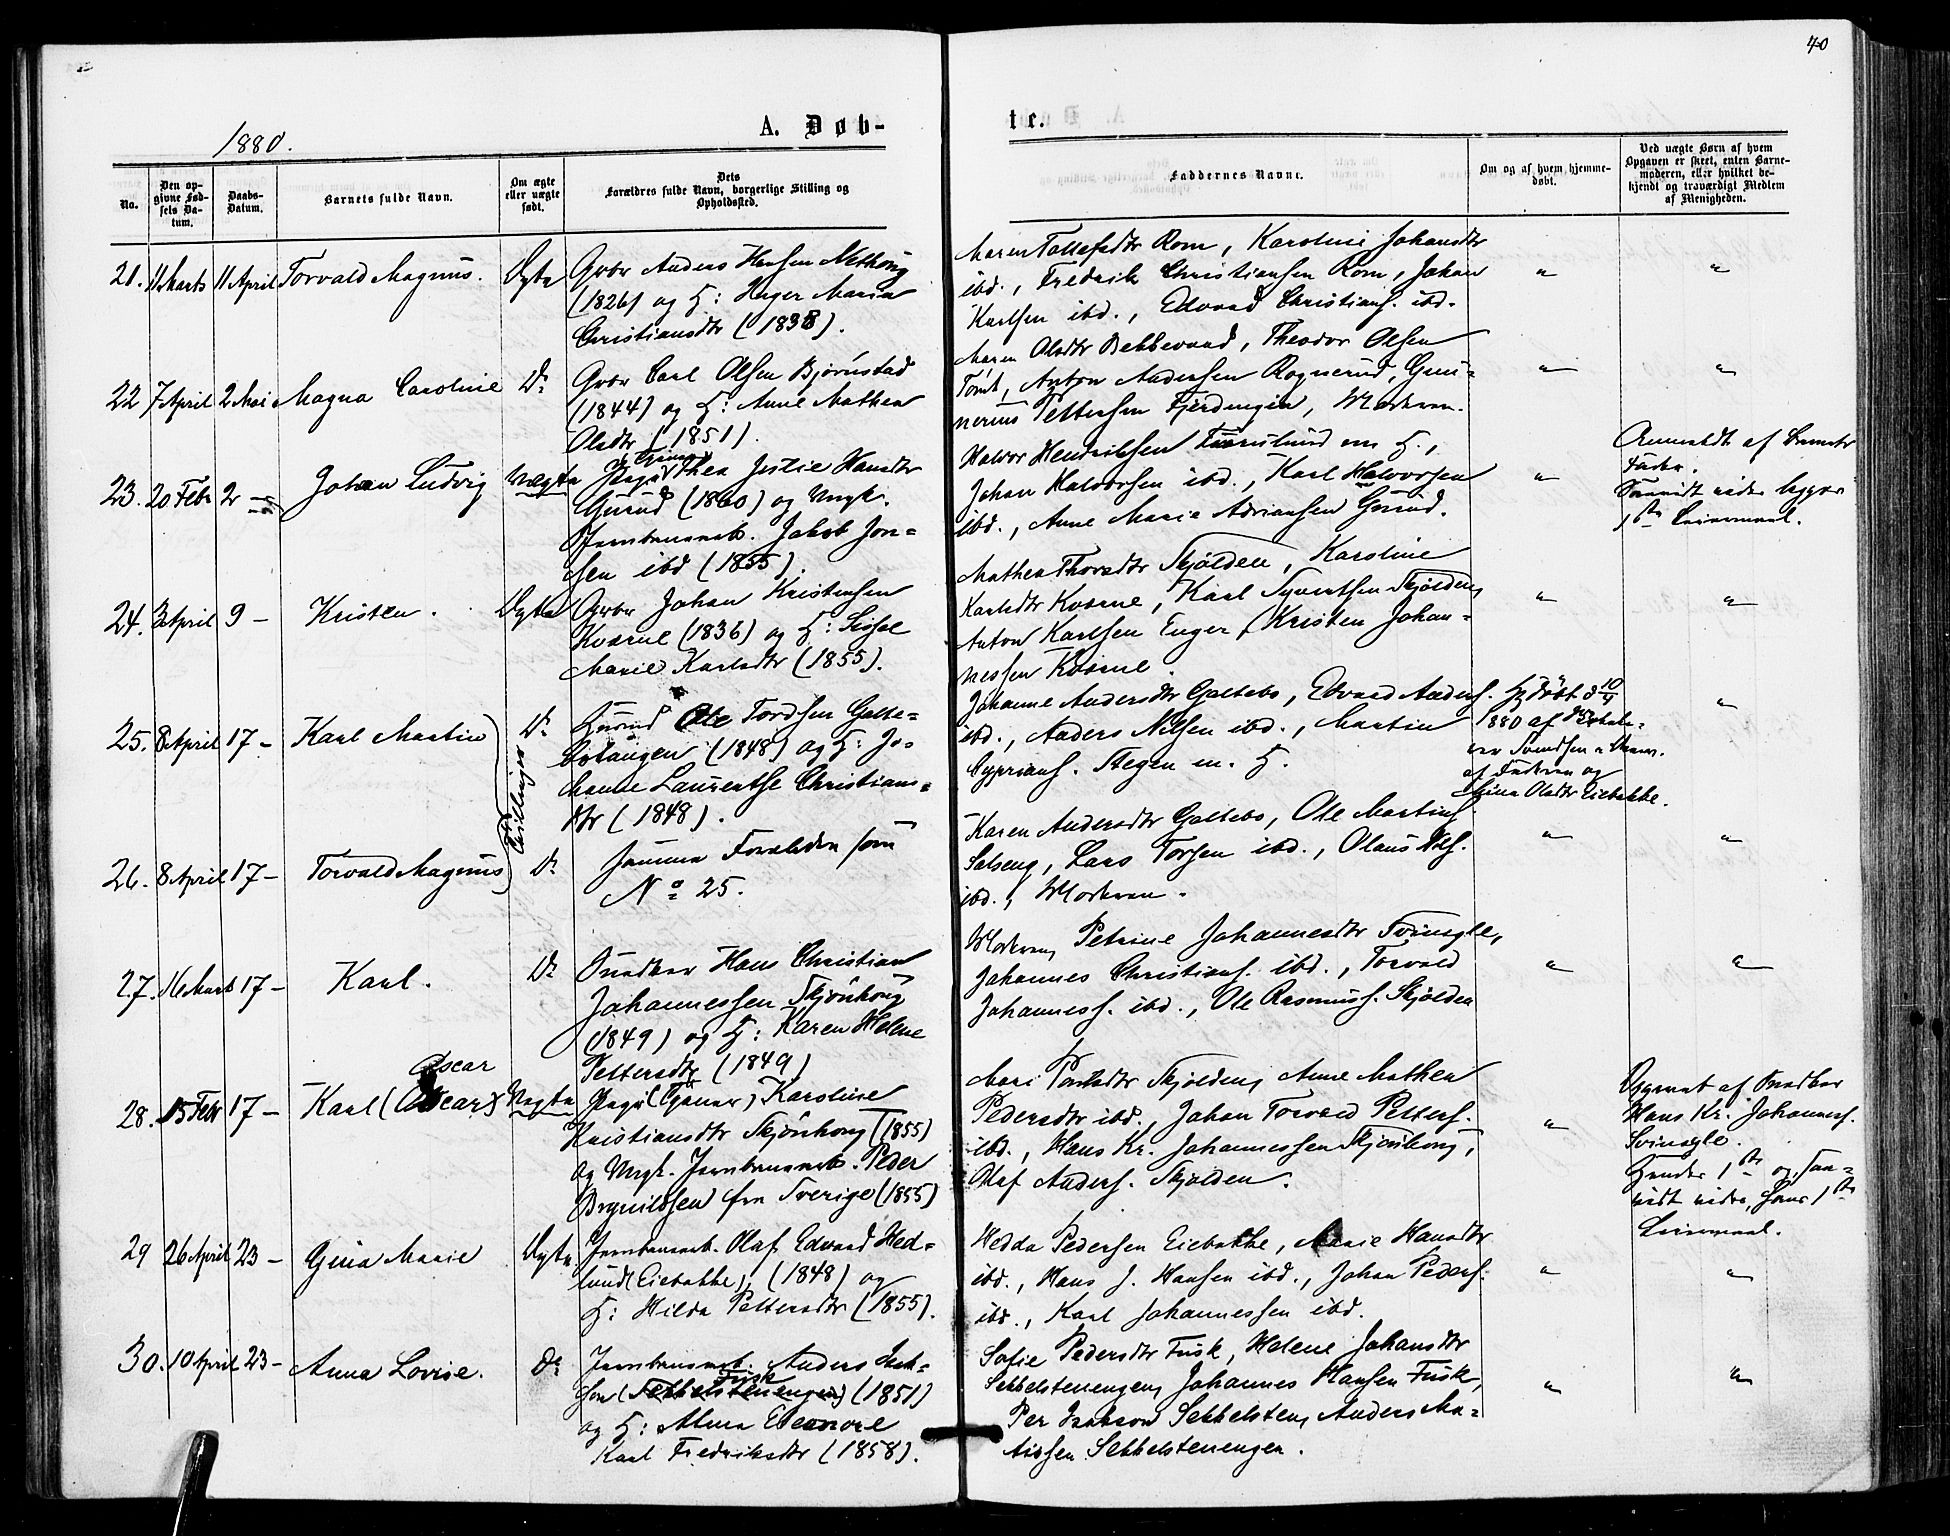 40
1880.
A. Døb-
te.
No.
Den op-
givne Fød-
sels Da-
tum.
Daabs-
Datum.
Barnets fulde Navn.
Om ægte
eller uægte
født.
Dets
Forældres fulde Navn, borgerlige Stilling og
Opholdssted.
Faddernes Navne.
Om og af hvem hjemme-
døbt.
Ved uægte Børn af hvem
Opgaven er skeet, enten Barne-
moderen, eller hvilket be-
kjendt og troværdigt Medlem
af Menigheden.
21. 11 Marts 11 April Torvald Magnus. Ægte
Grbr Anders Hansen
(1826) og H: Inger Maria
Christiansdtr (1838).
Maren Tollefsdtr Rom, Karoline Johansdtr
ibd., Fredrik Christiansen Rom, Johan
Karlsen ibd., Edvard Christians. ibd.
" "
22 7 April 2 Mai Magna Caroline Do
Grbr Carl Olsen Bjørnstad
(1844) og H: Anne Mathea
Olsdtr (1851).
Maren Olsdtr Bekkevand, Theodor Olsen
Tomt, Anton Andersen Rognerud, Gun-
nerius Pettersen Fjerdingen, Moderen.
" "
23. 20 Febr 2 - Johan Ludvig Uægte
Pige Thea Justie Hansdtr
Gurud (1860) og Ungk.
Jernbanearb. Jakob Jon-
sen ibd (1855).
Halvor Hendriksen m H.,
Johan Halvorsen ibd., Karl Halvorsen
ibd., Anne Marie Adriansen Gurud.
"
Anmeldt af Barnets
Fader.
1ste Leiermaal.
24. 3 April 9 - Kristen. Ægte
Grbr Johan Kristensen
Kværne (1836) og H: Sissel
Marie Karlsdtr (1855).
Mathea Thorsdtr Skjølden, Karoline
Karlsdtr Kværne, Karl Syvertsen Skjølden,
Anton Karlsen Enger, Kristen Johan-
nessen Kværne.
" "
25. 8 April 17 - Karl Martin Do
Tvillinger
Ole Tordsen Galte-
botangen (1848) og H: Jo-
hanne Laurentse Christians-
dtr (1848).
Johanne Andersdtr Galtebo, Edvard Anders.
ibd., Anders Nilsen ibd., Martin
Cyprians. Stegen m. H.
Hjdøbt d 10/4
1880 af
Svendsen
af Faderen og
Mina Olsdtr Eiebakke.
"
26. 8 April 17 - Torvald Magnus Do
Samme Forældre som
No 25.
Karen Andersdtr Galtebo, Ole Martins.
Salseng, Lars Torsen ibd., Olaus Nils.
ibd., Moderen.
" "
27. 16 Marts 17 - Karl. Do
Inderst Hans Christian
Johannessen Skjønhoug
(1849) og H: Karen Helene
Pettersdtr (1849)
Moderen, Petrine Johannesdtr Svinsgle,
Johannes Christians. ibd., Torvald
Johanness. ibd., Ole Rasmuss. Skjølden
" "
28. 15 Febr 17 - Karl (Oscar) Oscar Uægte
Pige (Tjener) Karoline
Kristiansdtr Skjønhoug (1855)
og Ungk. Jernbanearb. Peder
Brynildsen fra Sverige (1855)
Mari Skjølden, Anne Mathea
Pedersdtr ibd., Johan Torvald Petters.
ibd., Hans Kr. Johannessen Skjønhoug,
Olaf Anders. Skjølden.
"
Opgivet af
Hans Kr. Johanness.
Svinsgle.
1ste
1ste
Leiermaal.
29 26 April 23 - Gina Marie Ægte
Jernbanearb. Olaf Edvard Hed-
lund (Eiebakke), (1848) og
H: Hilda Pettersdtr (1855).
Hedda Pedersen Eiebakke, Marie Hansdtr
ibd., Hans J. Hansen ibd., Johan Peders.
ibd., Karl Johannessen ibd.
" "
30. 10 April 23 - Anna Lovise. Do
Jernbanearb. Anders Isak-
sen (Sekkelstenengen) Fusk (1851)
og H: Alma Eleonore
Karl Fredriksdtr (1858).
Sofie Pedersdtr Fusk, Helene Johansdtr
Sekkelstenengen, Johannes Hansen Fusk,
Per Isakson Sekkelsten, Anders Ma-
tissen Sekkelstenengen.
" "